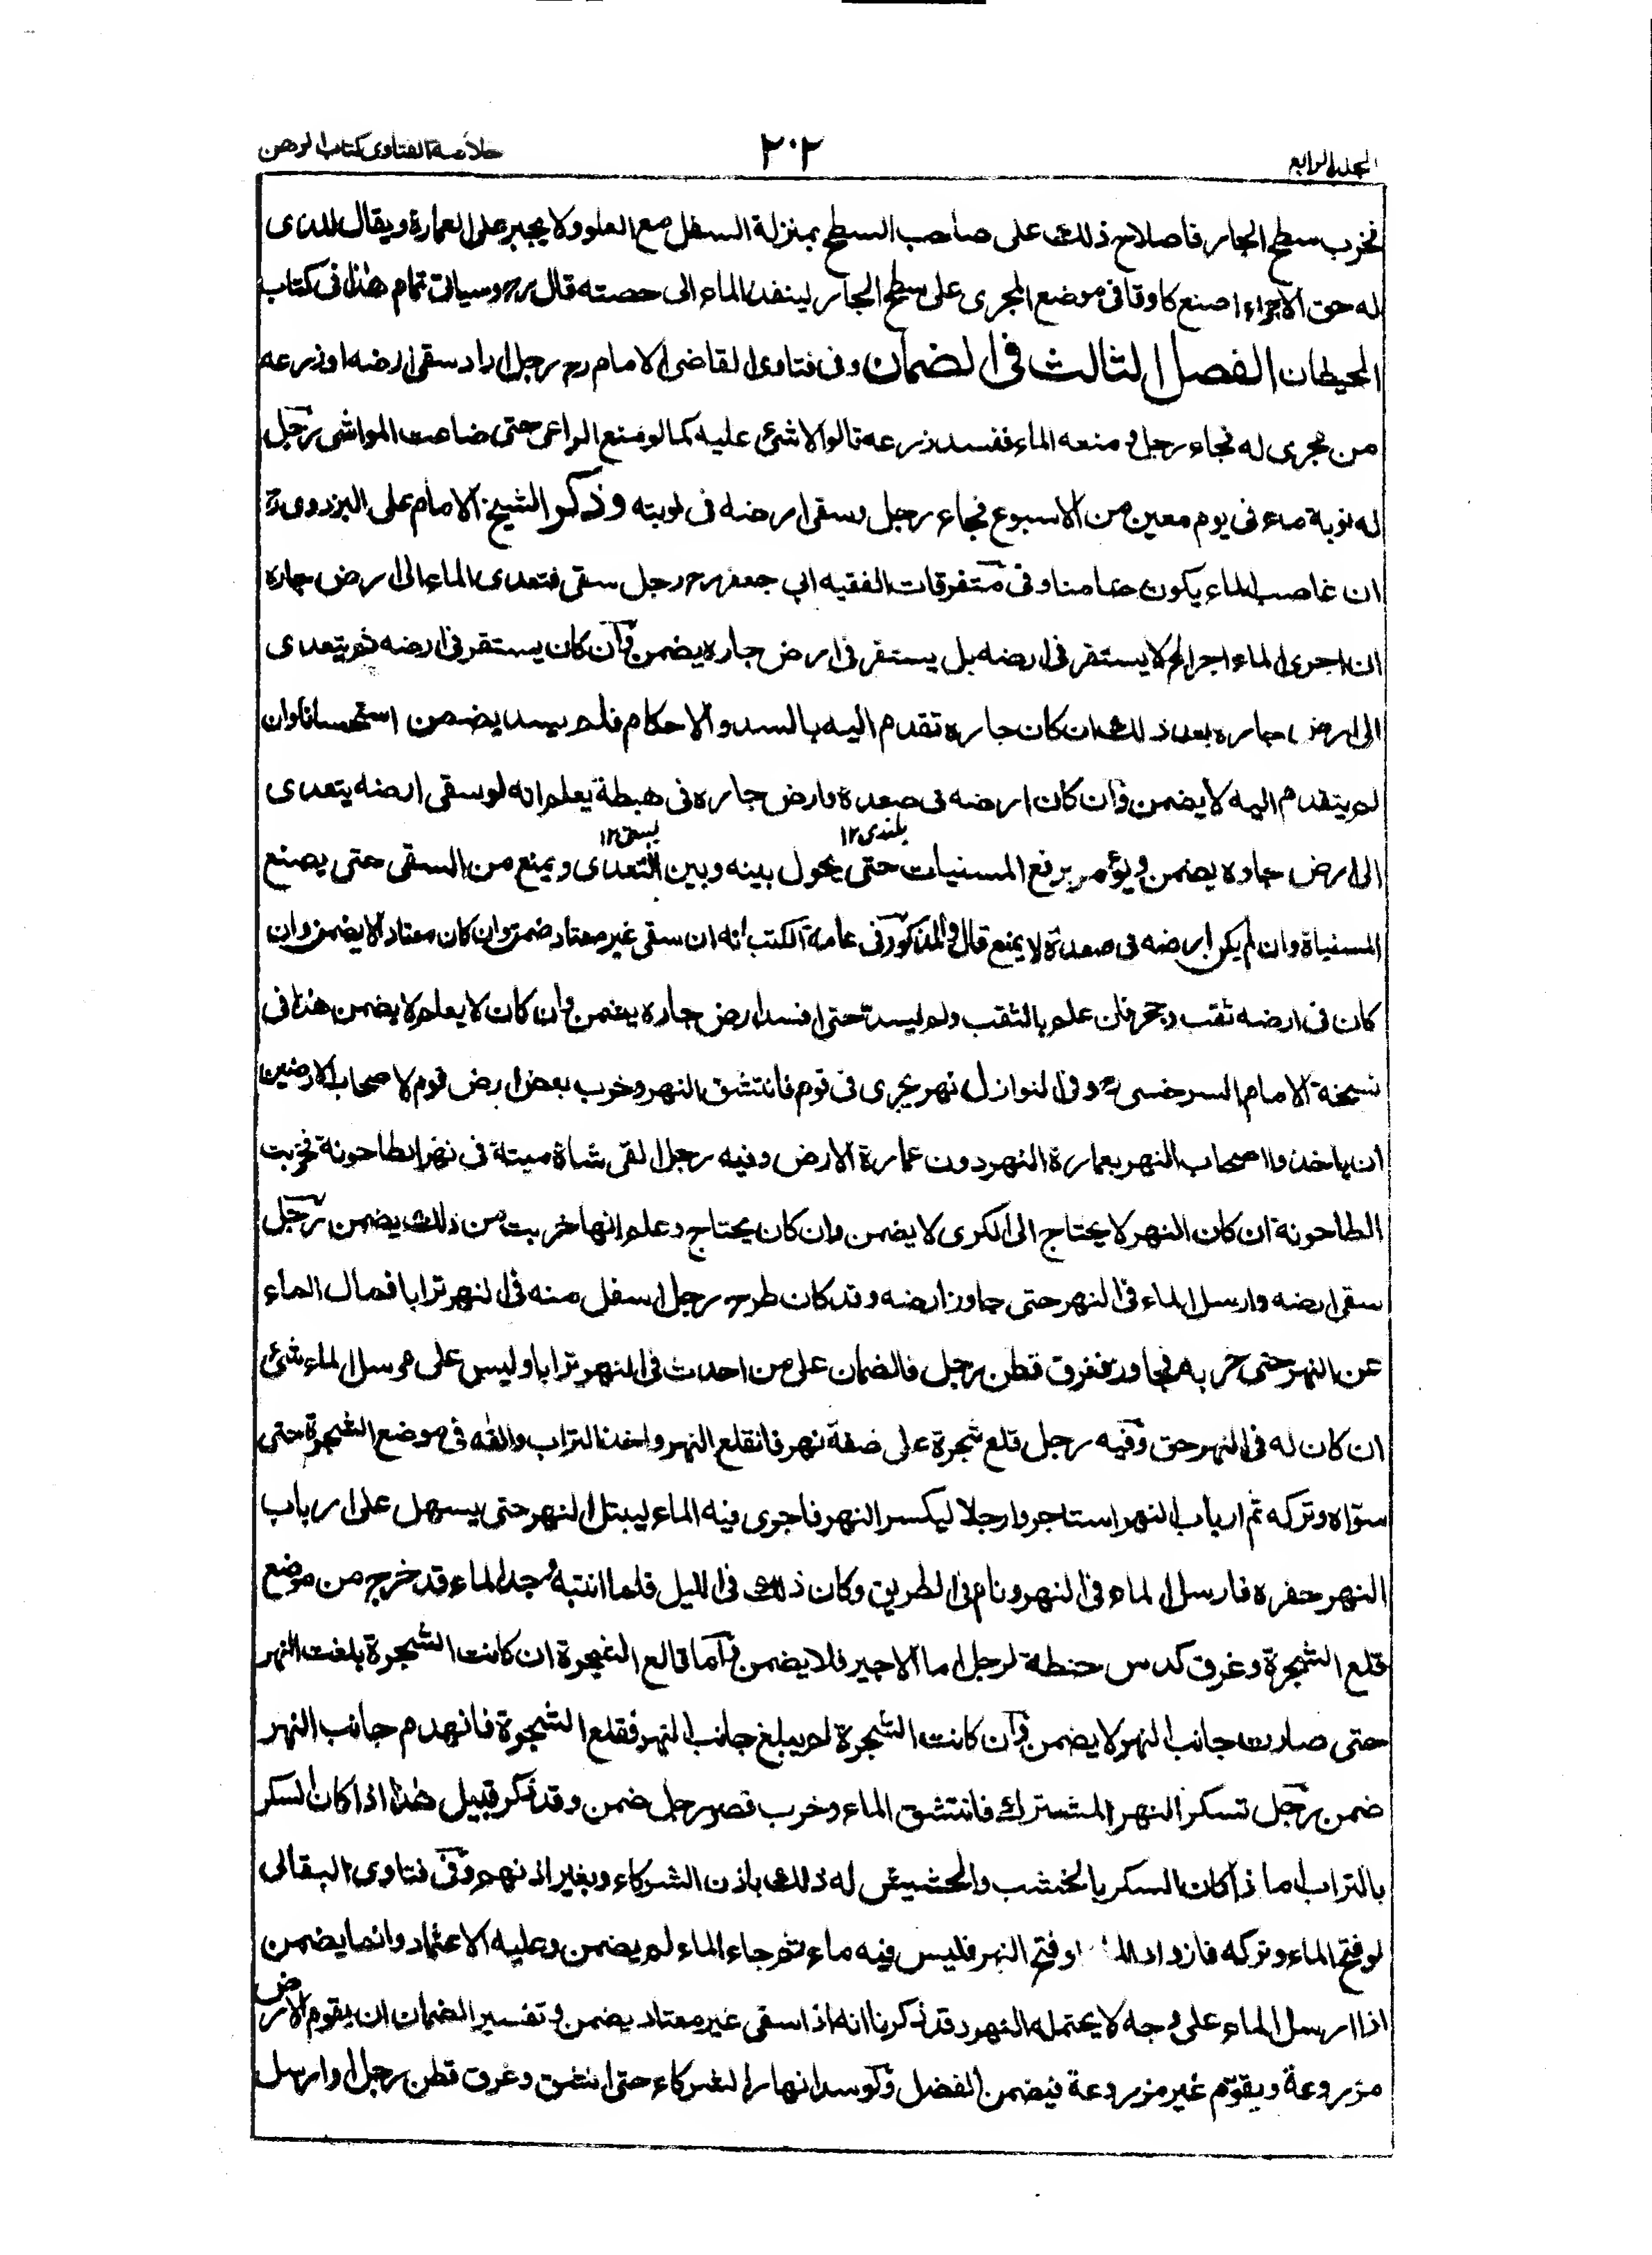 المجلد الرابع
٢٠٢
خلاصة الفتاوى كتاب الرهن
فخرب سطح الجار فاصلاح ذلك على صاحب السطح بمنزلة السفل مع العلو ولا يجبر على العمارة ويقال للذى
له حق الاجراء اصنع كاوقا فى موضع المجرى على سطح الجار لينفذ الماء الى حصته قال رح وسياتى تمام هذا فى كتاب
الحيطان الفصل الثالث فى الضمان وفى فتاوى القاضى الامام رح رجل اراد سقى ارضه او زرعه
من مجرى له فجاء رجل و منعه الماء ففسد زرعه قالوا لا شئ عليه كما لو منع الراعى حتى ضاعت المواشى رجل
له نوبة ماء فى يوم معين من الاسبوع فجاء رجل وسقى ارضه فى نوبته وذكر الشيخ الامام على البزدوى رح
ان غاصب الماء يكون ضامنا وفى متفرقات الفقيه ابى جعفر رح رجل سقى فتعدى الماء الى ارض جاره
ان اجرى الماء اجراء لا يستقر فى ارضه بل يستقر فى ارض جاره يضمن وان كان يستقر فى ارضه ثم يتعدى
الى ارض جاره بعد ذلك ان كان جاره تقدم اليه بالسد والاحكام فلم يسد يضمن استحسانا وان
لم يتقدم اليه لا يضمن وان كان ارضه فى صعدة وارض جاره فى هبطة يعلم انه لو سقى ارضه يتعدى
بلندى ١٢
پستى ١٢
الى ارض جاره يضمن ويؤمر برفع المسنيات حتى يحول بينه وبين التعدى ويمنع من السقى حتى يصنع
المسنياة وان لم يكن ارضه فى صعدة لا يمنع قال والمذكور فى عامة الكتب انه ان سقى غير معتاد ضمن وان كان معتادا لا يضمن وان
كان فى ارضه ثقب وجحر فان علم بالثقب ولم يسده حتى افسد ارض جاره يضمن وان كان لا يعلم لا يضمن هذا فى
نسخة الامام السرخسى رح وفى النوازل نهر يجرى فى قوم فانتشق النهر وخرب بعض ارض قوم لاصحاب الارضين
ان ياخذوا اصحاب النهر بعمارة النهر دون عمارة الارض وفيه رجل القى شاة ميتة فى نهر الطاحونة فخربت
الطاحونة ان كان النهر لا يحتاج الى الكرى لا يضمن وان كان يحتاج وعلم انها خربت من ذلك يضمن رجل
سقى ارضه وارسل الماء فى النهر حتى جاوز ارضه وقد كان طرح رجل اسفل منه فى النهر ترابا فمال الماء
عن النهر حتى خرب فغرق قطن رجل فالضمان على من احدث فى النهر ترابا وليس على مرسل الماء شئ
ان كان له فى النهر حق وفيه رجل قلع شجرة على ضفة نهر فانقلع النهر واخذ التراب والقه فى موضع الشجرة حتى
سوّاه وتركه ثم ارباب النهر استاجروا رجلا ليكسر النهر فاجرى فيه الماء ليبتل النهر حتى يسهل على ارباب
النهر حفره فارسل الماء فى النهر ونام فى الطريق وكان ذلك فى الليل فلما انتبه وجد الماء قد خرج من موضع
قلع الشجرة وغرق كدس حنطة لرجل اما الاجير فلا يضمن واما قالع الشجرة ان كانت الشجرة بلغت النهر
حتى صارت جانب النهر لا يضمن وان كانت الشجرة لم يبلغ جانب النهر فقلع الشجرة فانهدم جانب النهر
ضمن رجل تسكر النهر المشترك فانتشق الماء وخرب قصر رجل ضمن وقد ذكر قبيل هذا اذا كان السكر
بالتراب اما اذا كان السكر بالخشب والحشيش له ذلك باذن الشركاء وبغير اذنهم وفى فتاوى البقالى
لو فتح الماء وتركه فازداد الماء او فتح النهر فليس فيه ماء ثم جاء الماء لم يضمن وعليه الاعتماد وانما يضمن
اذا ارسل الماء على وجه لا يحتمله النهر وقد ذكرنا انه اذا سقى غير معتاد يضمن وتفسير الضمان ان يقوم الارض
مزروعة ويقوّم غير مزروعة فيضمن الفضل ولو سد انهار الشركاء حتى انشق وغرق قطن رجل او ارسل